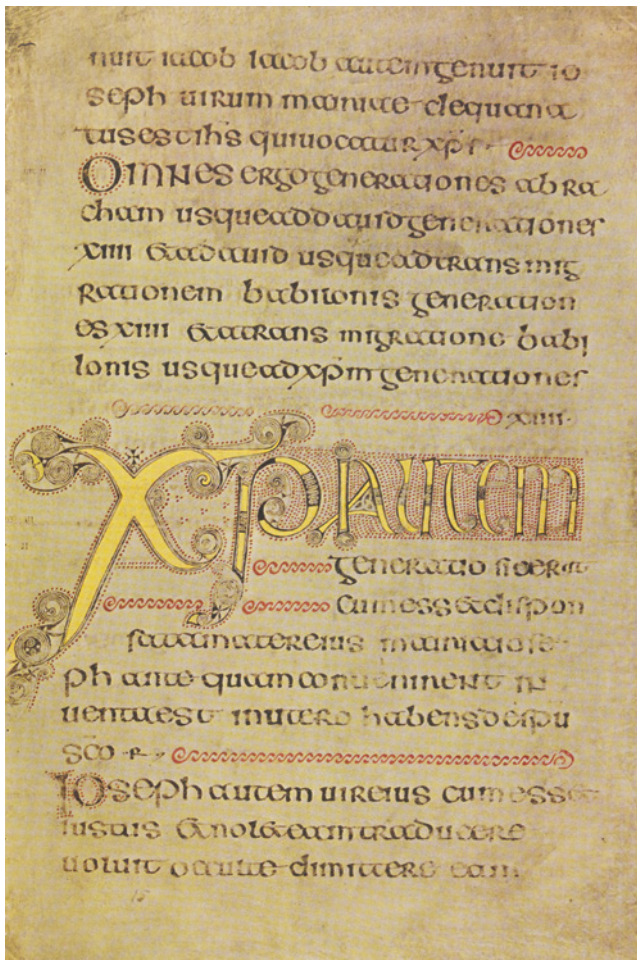 nuit iacob iacob autem genuit io
seph uirum mariae de qua na
tus est ihs qui uocatur xps
Omnes ergo generationes abra
cham usque ad dauid generationes
xiiii & a dauid usque ad transmig
rationem babilonis generation
es xiiii & a transmigratione babi
lonis usque ad xpm generationes
xiiii
XPI autem
generatio sic erat
cum ess& dispon
sata mater eius maria iose
ph ante quam conuenirent in
uenta est in utero habens de spu
sco
Ioseph autem uir eius cum ess&
iustus & nol& eam traducere
uoluit occulte dimittere eam